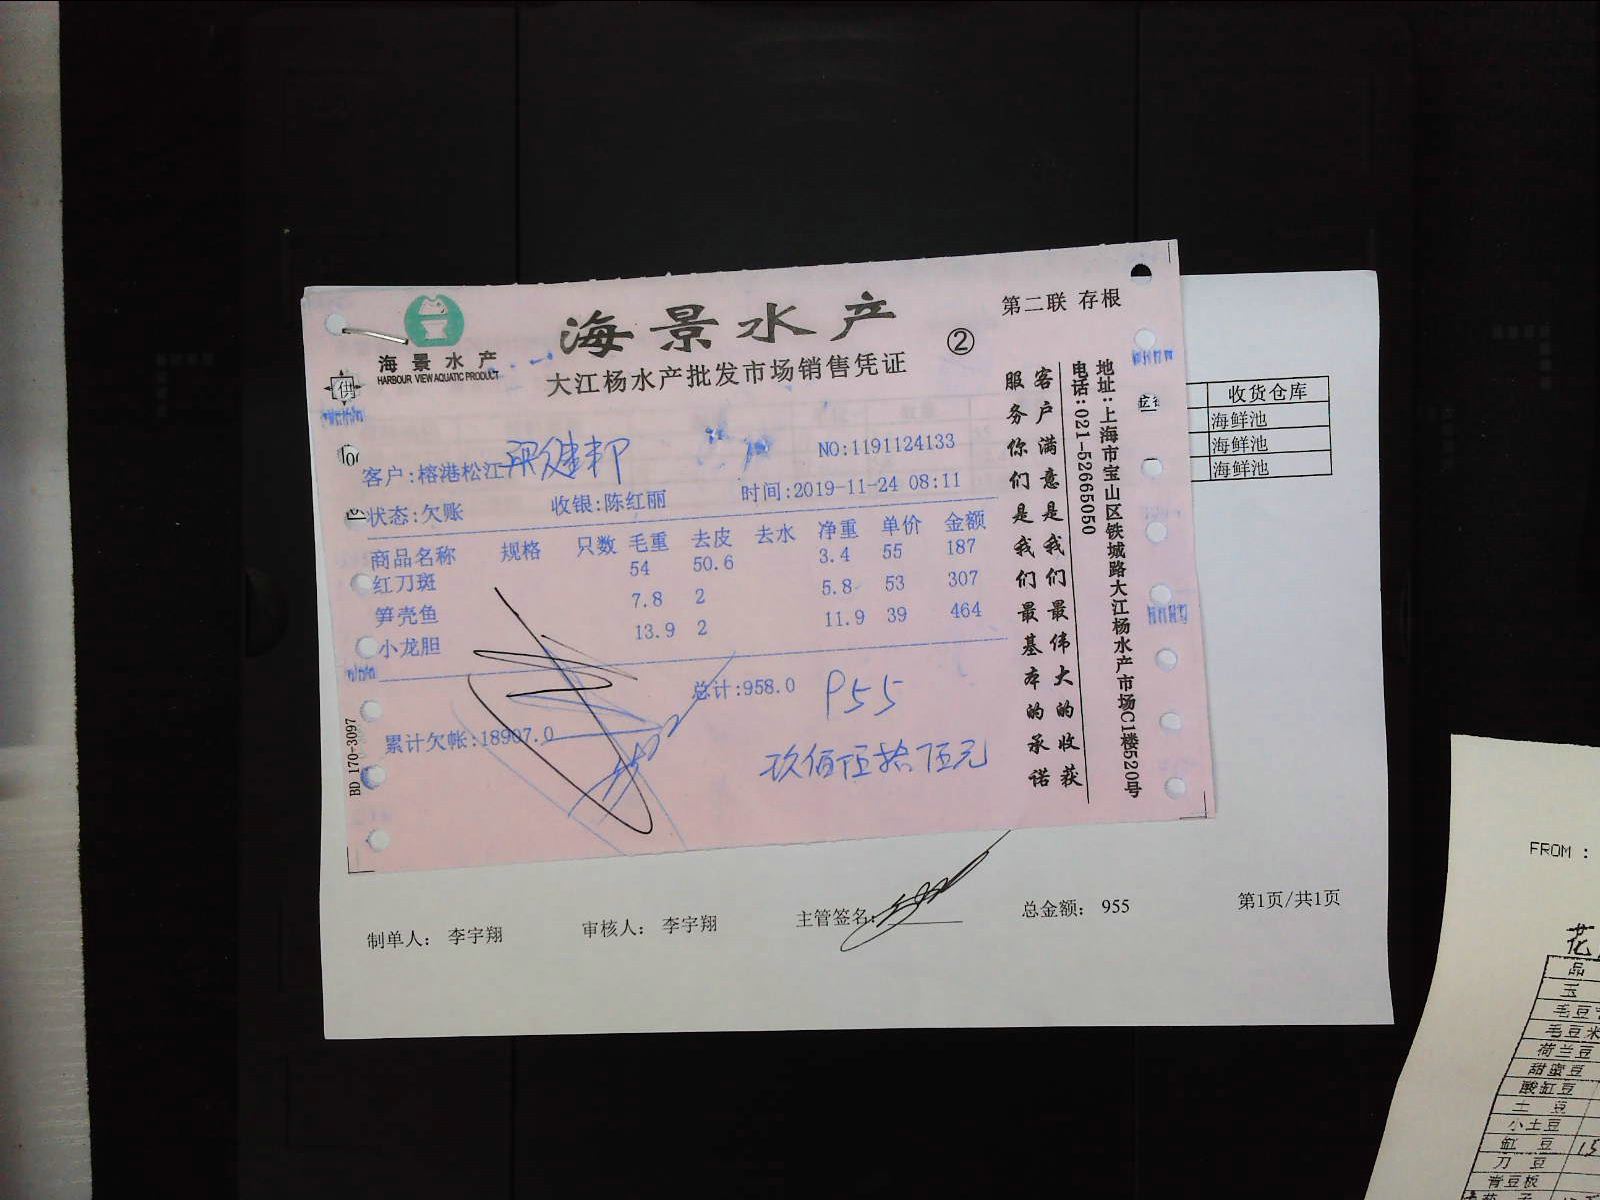 海景水产
HARBOUR VIEW AQUATIC PRODUCT
海景水产
大江杨水产批发市场销售凭证
②
第二联 存根
供
客户:榕港松江
NO:1191124133
状态:欠账
收银:陈红丽
时间:2019-11-24 08:11
商品名称 规格 只数 毛重 去皮 去水 净重 单价 金额
红刀斑 54 50.6 3.4 55 187
笋壳鱼 7.8 2 5.8 53 307
小龙胆 13.9 2 11.9 39 464
总计:958.0
955
累计欠帐:18907.0
玖佰伍拾伍元
BD 170-3097
客户满意是我们最伟大的收获
服务你们是我们最基本的承诺
地址:上海市宝山区铁城路大江杨水产市场C1楼520号
电话:021-52665050
收货仓库
海鲜池
海鲜池
海鲜池
制单人: 李宇翔
审核人: 李宇翔
主管签名:
总金额: 955
第1页/共1页
FROM :
花
品
玉
毛豆
毛豆米
荷兰豆
甜蜜豆
酸缸豆
土豆
小土豆
缸豆 15
刀豆
青豆板